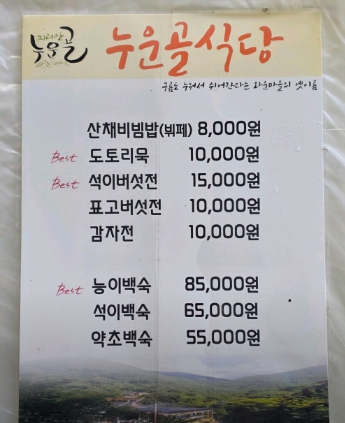 지리산
누운골
누운골식당
구름도 누워서 쉬어간다는 와운마을의 옛이름
산채비빔밥(뷔페) 8,000원
Best 도토리묵 10,000원
Best 석이버섯전 15,000원
표고버섯전 10,000원
감자전 10,000원
Best 능이백숙 85,000원
석이백숙 65,000원
약초백숙 55,000원